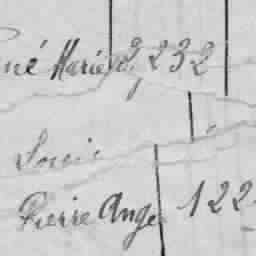 né Marie 2,232
Louis
Pierre Ange 122